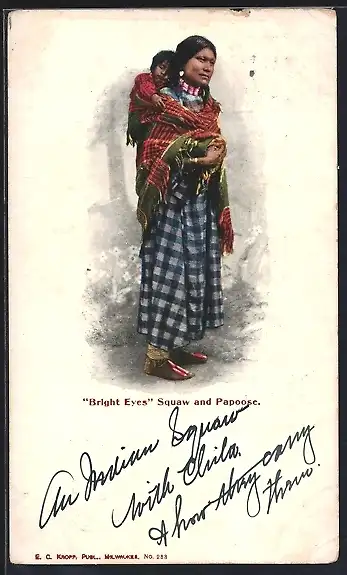 "Bright Eyes" Squaw and Papoose.
An Indian Squaw
with Child.
& how they carry
them.
E. C. KROPP, PUBL., MILWAUKEE. No. 253